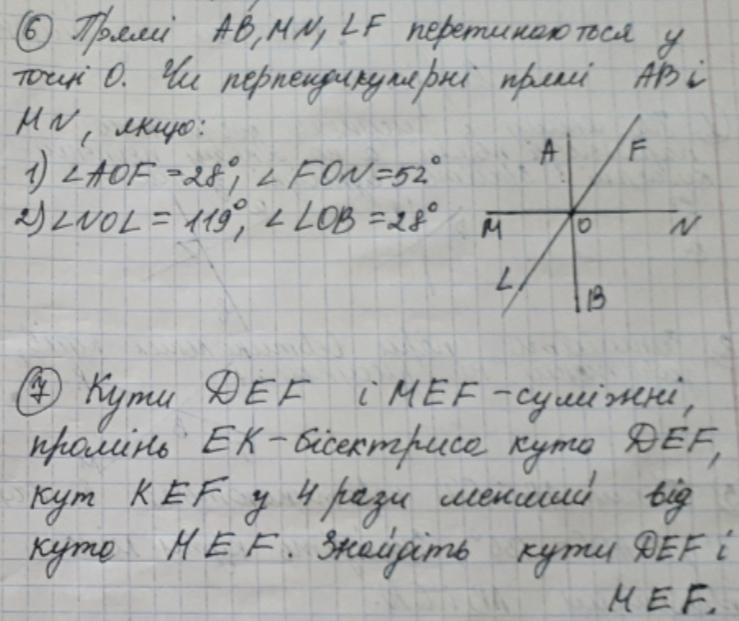 6 Прямі AB, MN, LF перетинаються у
точці O. Чи перпендикулярні прямі AB і
MN, якщо:
1) ∠AOF = 28°, ∠FON = 52°
2) ∠NOL = 119°, ∠LOB = 28°
A F
M O N
L B
7 Кути DEF і MEF - суміжні,
промінь EK - бісектриса кута DEF,
кут KEF у 4 рази менший від
кута MEF. Знайдіть кути DEF і
MEF.